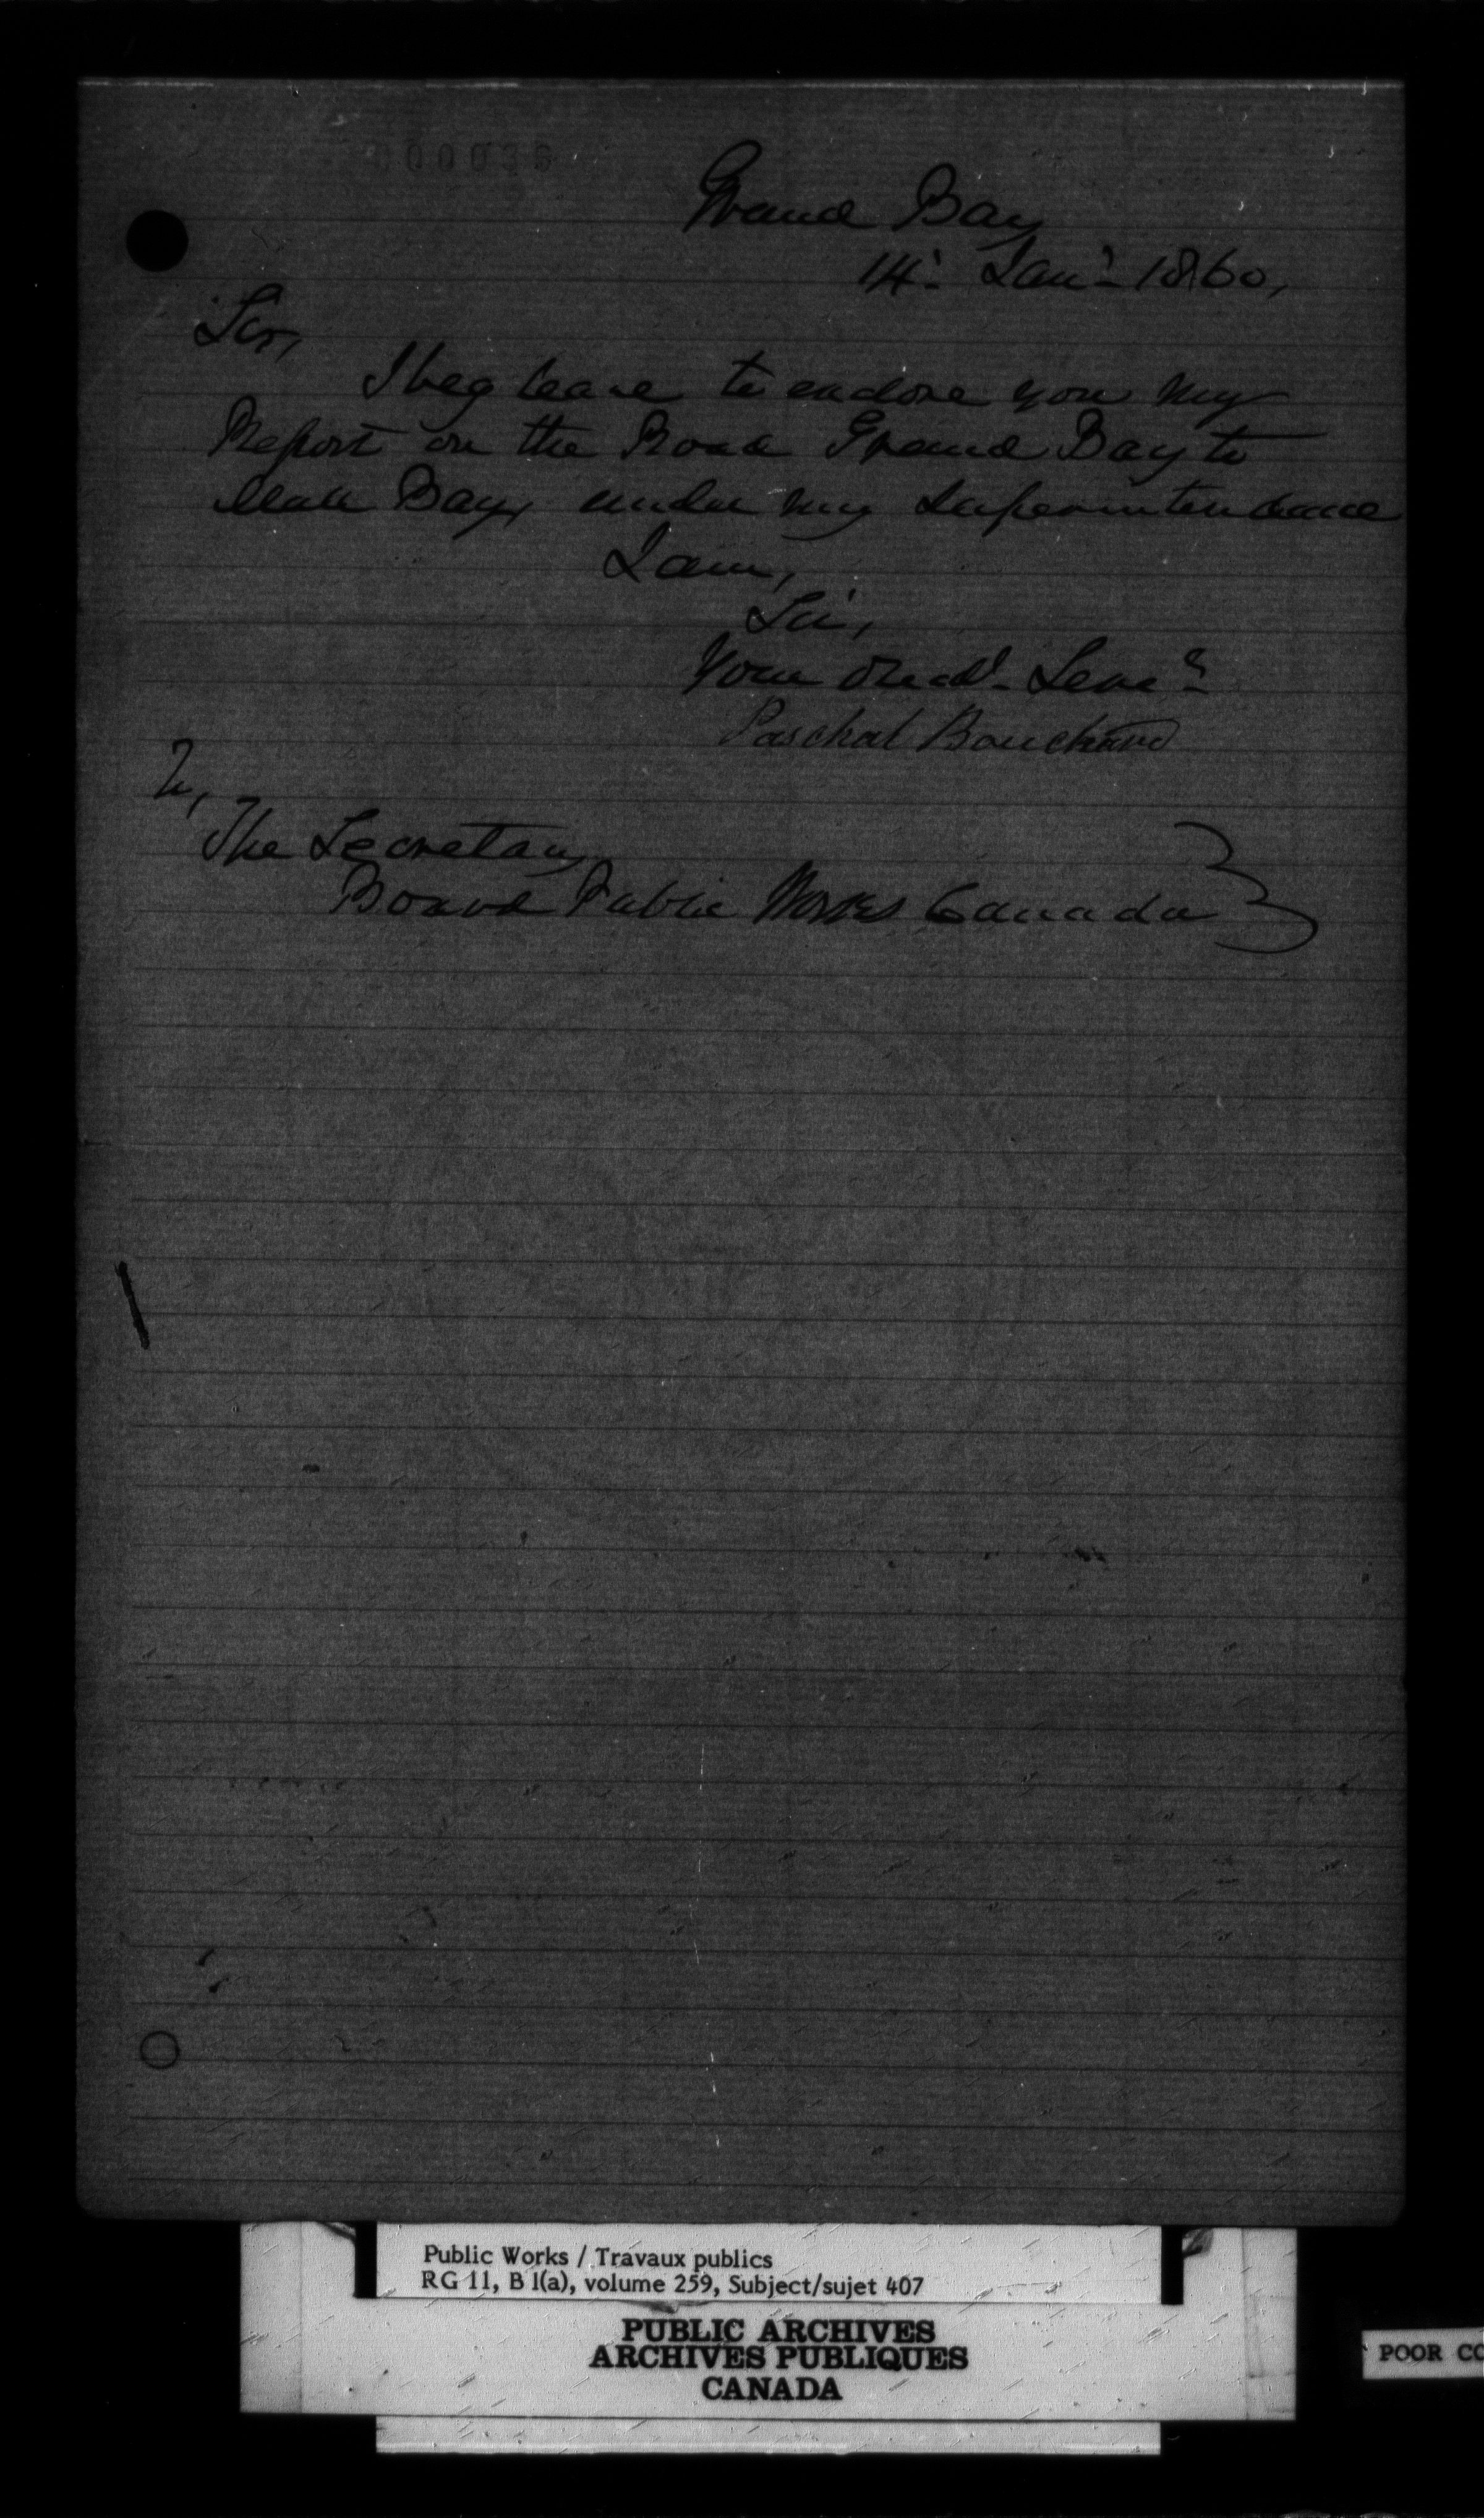 Grand Bay
14: Jan: 1860,
Sir,
I beg leave to enclose you my
Report on the Road Grand Bay to
Mall Bay, under my Superintendance
I am,
Sir,
Your Obed: Serv:
Paschal Bouchard
To,
The Secretary
Board Public Works Canada
Public Works / Travaux publics
RG 11, B 1(a), volume 259, Subject/sujet 407
PUBLIC ARCHIVES
ARCHIVES PUBLIQUES
CANADA
POOR CO